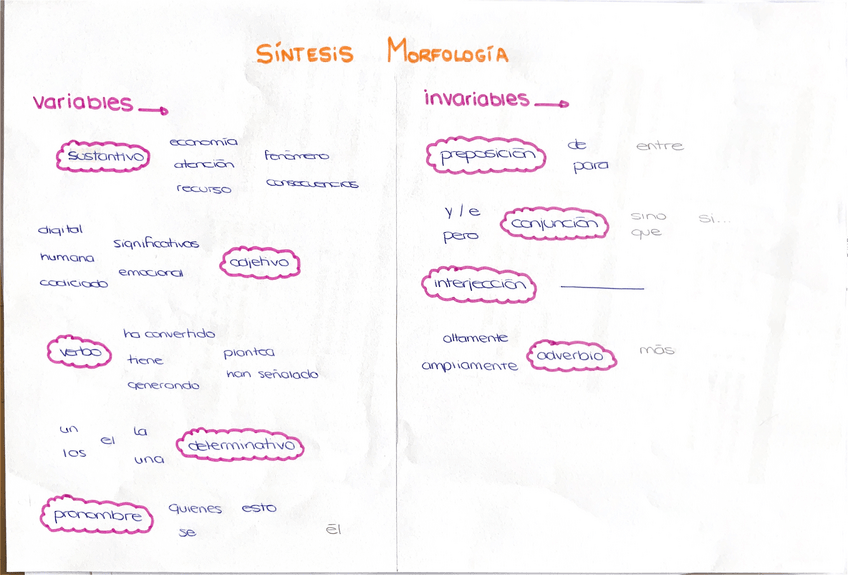 SÍNTESIS MORFOLOGÍA
variables
sustantivo
economía
atención
recurso
fenómeno
consecuencias
digital
humana
codiciado
significativos
emocional
adjetivo
verbo
ha convertido
tiene
generando
plantea
han señalado
un
los
el
la
una
determinativo
pronombre
quienes esto
se
él
invariables
preposición
de
para
entre
y/e
pero
conjunción
sino si...
que
interjección
altamente
ampliamente
adverbio
más